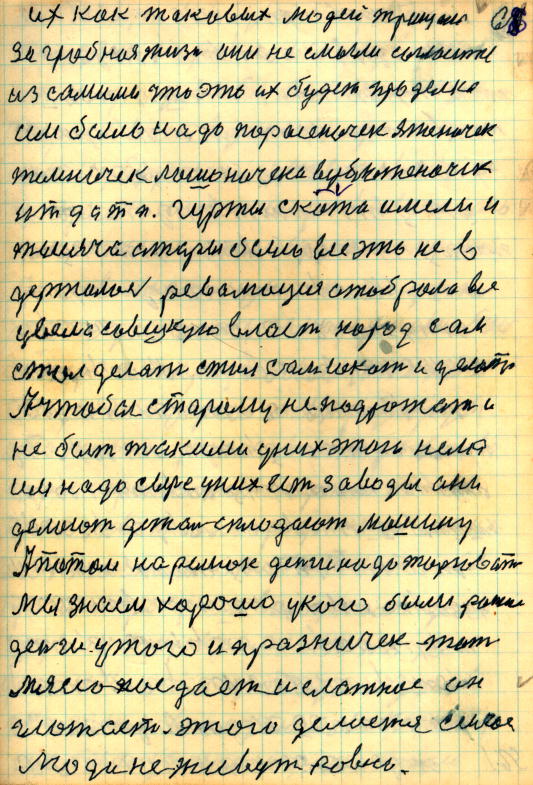 их как таковых людей тращали
загробная жизн они не смогли
из самими што эта их будет проделка
им было надо поросеночек ягненочек
теленочек лошоночека
ит дата. гурты скота имели и
тысяча атары было все это не в
держалося революция отобрала все
увела совецкую власт народ сам
стал делат стал сам искат и делать
А чтобы старому не подрожат и
не быт такими уних этого нелзя
им надо сырё уних ест заводы они
делают детал складают машину
А потом на релток денги надо торговать
мы знаем хорошо укого были ранше
денги. утого и празничек тот
мясцо поедает и слаткое он
глотает. этого делается
люди не живут ровно.